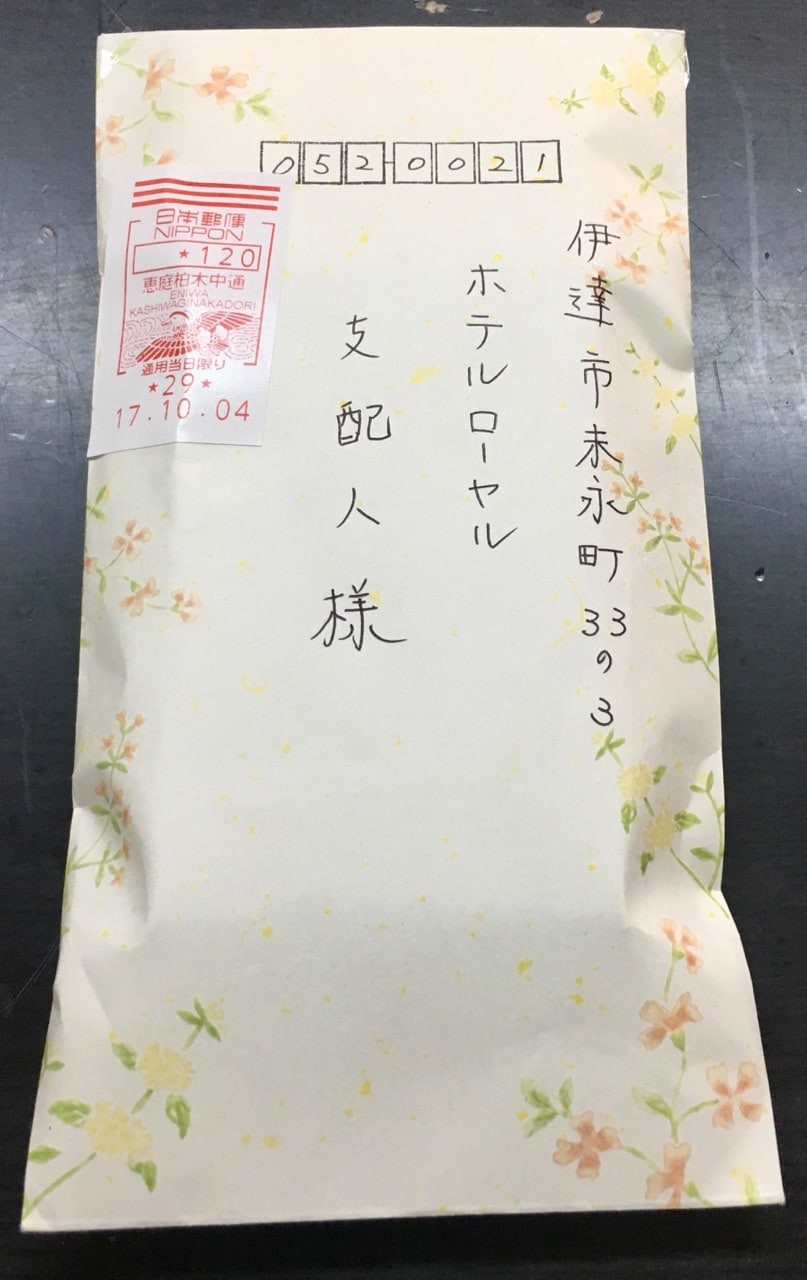 052-0021
伊達市末永町33の3
ホテルローヤル
支配人様
日本郵便
NIPPON
★120
恵庭柏木中通
ENIWA
KASHIWAGINAKADORI
通用当日限り
★29★
17.10.04